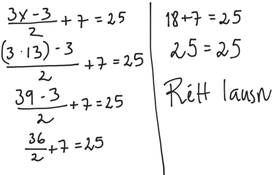 (3x - 3)/2 + 7 = 25
((3 · 13) - 3)/2 + 7 = 25
(39 - 3)/2 + 7 = 25
36/2 + 7 = 25
18 + 7 = 25
25 = 25
Rétt lausn